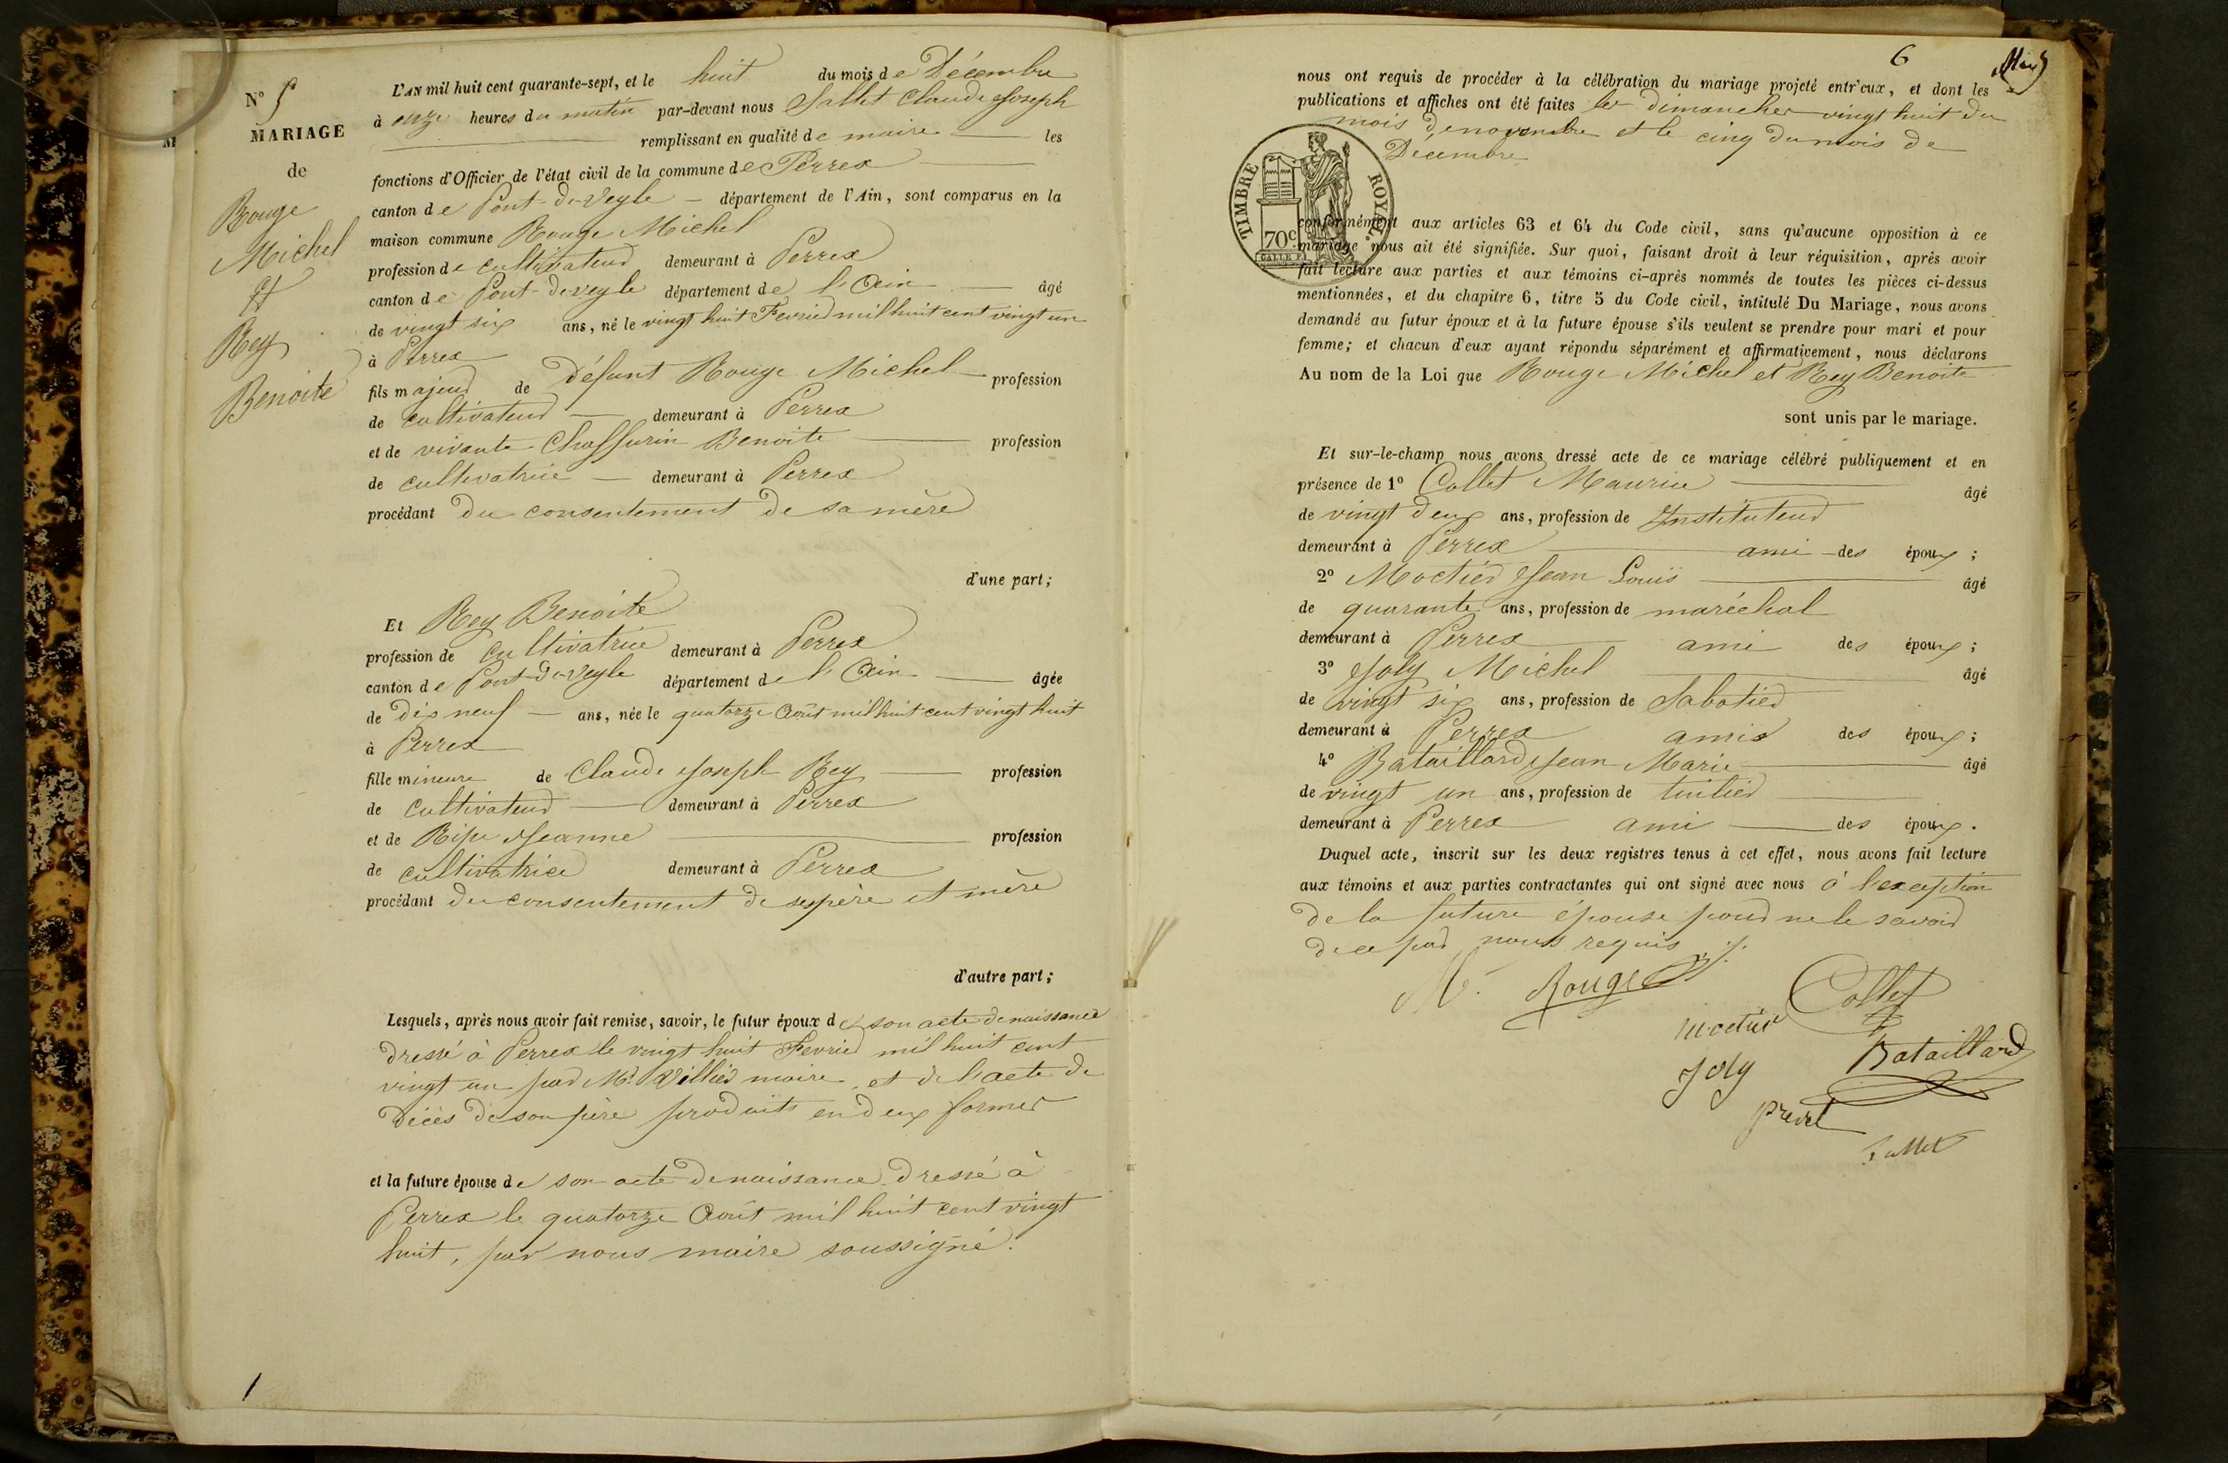 N° 5
MARIAGE
de
Rouge
Michel
Et
Rey
Benoite
L'AN mil huit cent quarante-sept, et le huit du mois de Décembre
à onze heures du matin par-devant nous Sallet Claude Joseph
remplissant en qualité de maire les
fonctions d'Officier de l'état civil de la commune de Perrex
canton de Pont-de-Veyle département de l'Ain, sont comparus en la
maison commune Rouge Michel
profession de cultivateur demeurant à Perrex
canton de Pont-de-veyle département de l'Ain âgé
de vingt six ans, né le vingt huit Fevrier mil huit cent vingt un
à Perrex
fils majeur de défunt Rouge Michel profession
de cultivateur demeurant à Perrex
et de vivante Chassurin Benoite profession
de cultivatrice demeurant à Perrex
procédant du consentement de sa mère
d'une part;
Et Rey Benoite
profession de cultivatrice demeurant à Perrex
canton de Pont-de-Veyle département de l'Ain âgée
de dix neuf ans, née le quatorze Août mil huit cent vingt huit
à Perrex
fille mineure de Claude Joseph Rey profession
de cultivateur demeurant à Perrex
et de Jeanne profession
de cultivatrice demeurant à Perrex
procédant du consentement de ses père et mère
d'autre part;
Lesquels, après nous avoir fait remise, savoir, le futur époux de son acte de naissance
dressé à Perrex le vingt huit Fevrier mil huit cent
vingt un par Mr. Villier maire, et de l'acte de
décès de son père produits en deux formes
et la future épouse de son acte de naissance dressé à
Perrex le quatorze Août mil huit cent vingt
huit, par nous maire soussigné.
6
nous ont requis de procéder à la célébration du mariage projeté entr'eux, et dont les
publications et affiches ont été faites les dimanches vingt huit du
mois de novembre et le cinq du mois de
Décembre
TIMBRE ROYAL.
70c
conformément aux articles 63 et 64 du Code civil, sans qu'aucune opposition à ce
mariage nous ait été signifiée. Sur quoi, faisant droit à leur réquisition, après avoir
fait lecture aux parties et aux témoins ci-après nommés de toutes les pièces ci-dessus
mentionnées, et du chapitre 6, titre 5 du Code civil, intitulé Du Mariage, nous avons
demandé au futur époux et à la future épouse s'ils veulent se prendre pour mari et pour
femme; et chacun d'eux ayant répondu séparément et affirmativement, nous déclarons
Au nom de la Loi que Rouge Michel et Rey Benoite
sont unis par le mariage.
Et sur-le-champ nous avons dressé acte de ce mariage célébré publiquement et en
présence de 1° Collet Maurice âgé
de vingt deux ans, profession de Instituteur
demeurant à Perrex ami des époux;
2° Moctier Jean Louis âgé
de quarante ans, profession de maréchal
demeurant à Perrex ami des époux;
3° Joly Michel âgé
de vingt six ans, profession de Sabotier
demeurant à Perrex amis des époux;
4° Bataillard Jean Marie âgé
de vingt un ans, profession de tuilier
demeurant à Perrex ami des époux.
Duquel acte, inscrit sur les deux registres tenus à cet effet, nous avons fait lecture
aux témoins et aux parties contractantes qui ont signé avec nous à l'exception
de la future épouse pour ne le savoir
de ce par nous requis ./.
M. Rouge
Collet
moctier
Joly
Bataillard
prevel
Sallet